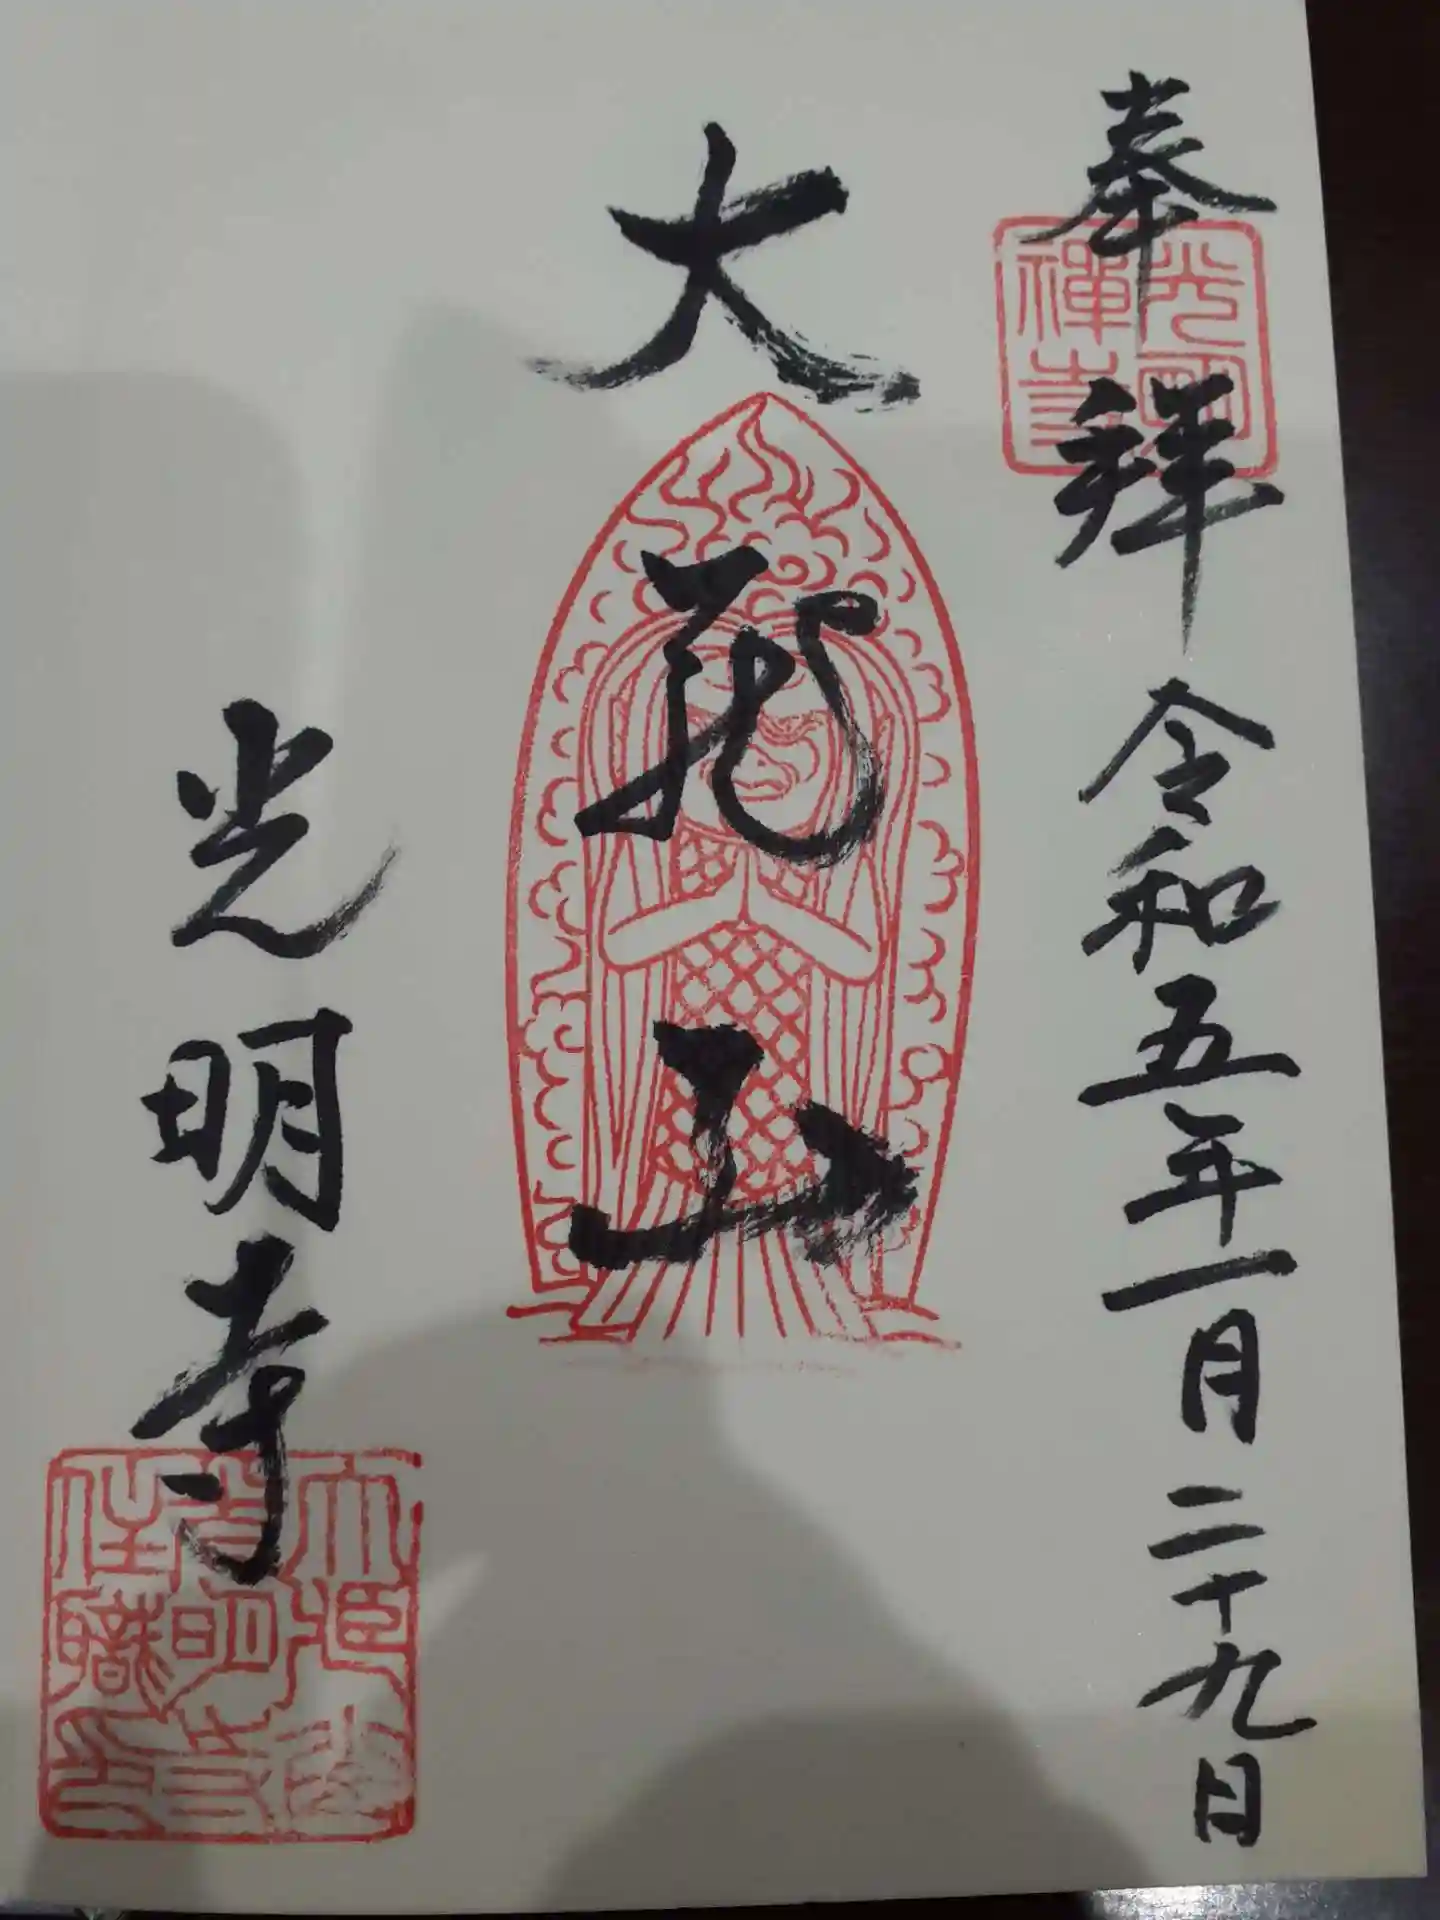 奉拝
令和五年一月二十九日
大龍山
光明寺
光明禅寺